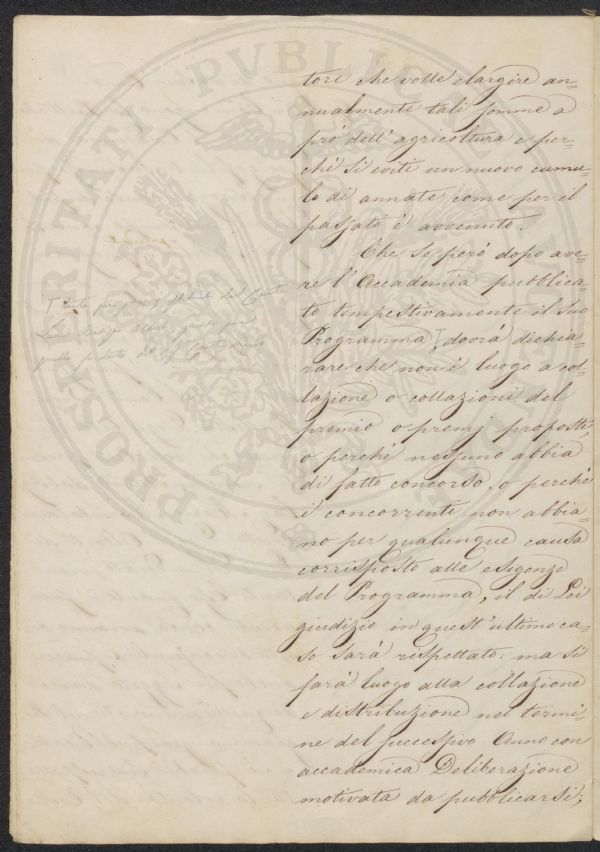 tore che volle elargire an=
nualmente tali somme a
prò dell'agricoltura e per=
chè si eviti un nuovo cumu=
lo di annate come per il
passato è avvenuto.
Che se però dopo ave=
re l'Accademia pubblica=
to tempestivamente il suo
Programma, dovrà dichia=
rare che non è luogo a col=
lazione o collazioni del
premio o premj proposti,
o perchè nessuno abbia
di fatto concorso, o perchè
i concorrenti non abbia=
no per qualunque causa
corrisposto alle esigenze
del Programma, il di Lei
giudizio in quest'ultimo ca=
so sarà rispettato: ma si
farà luogo alla collazione
e distribuzione nel termi=
ne del successivo Anno con
accademica Deliberazione
motivata da pubblicarsi;
PROSPERITATI PVBLICAE